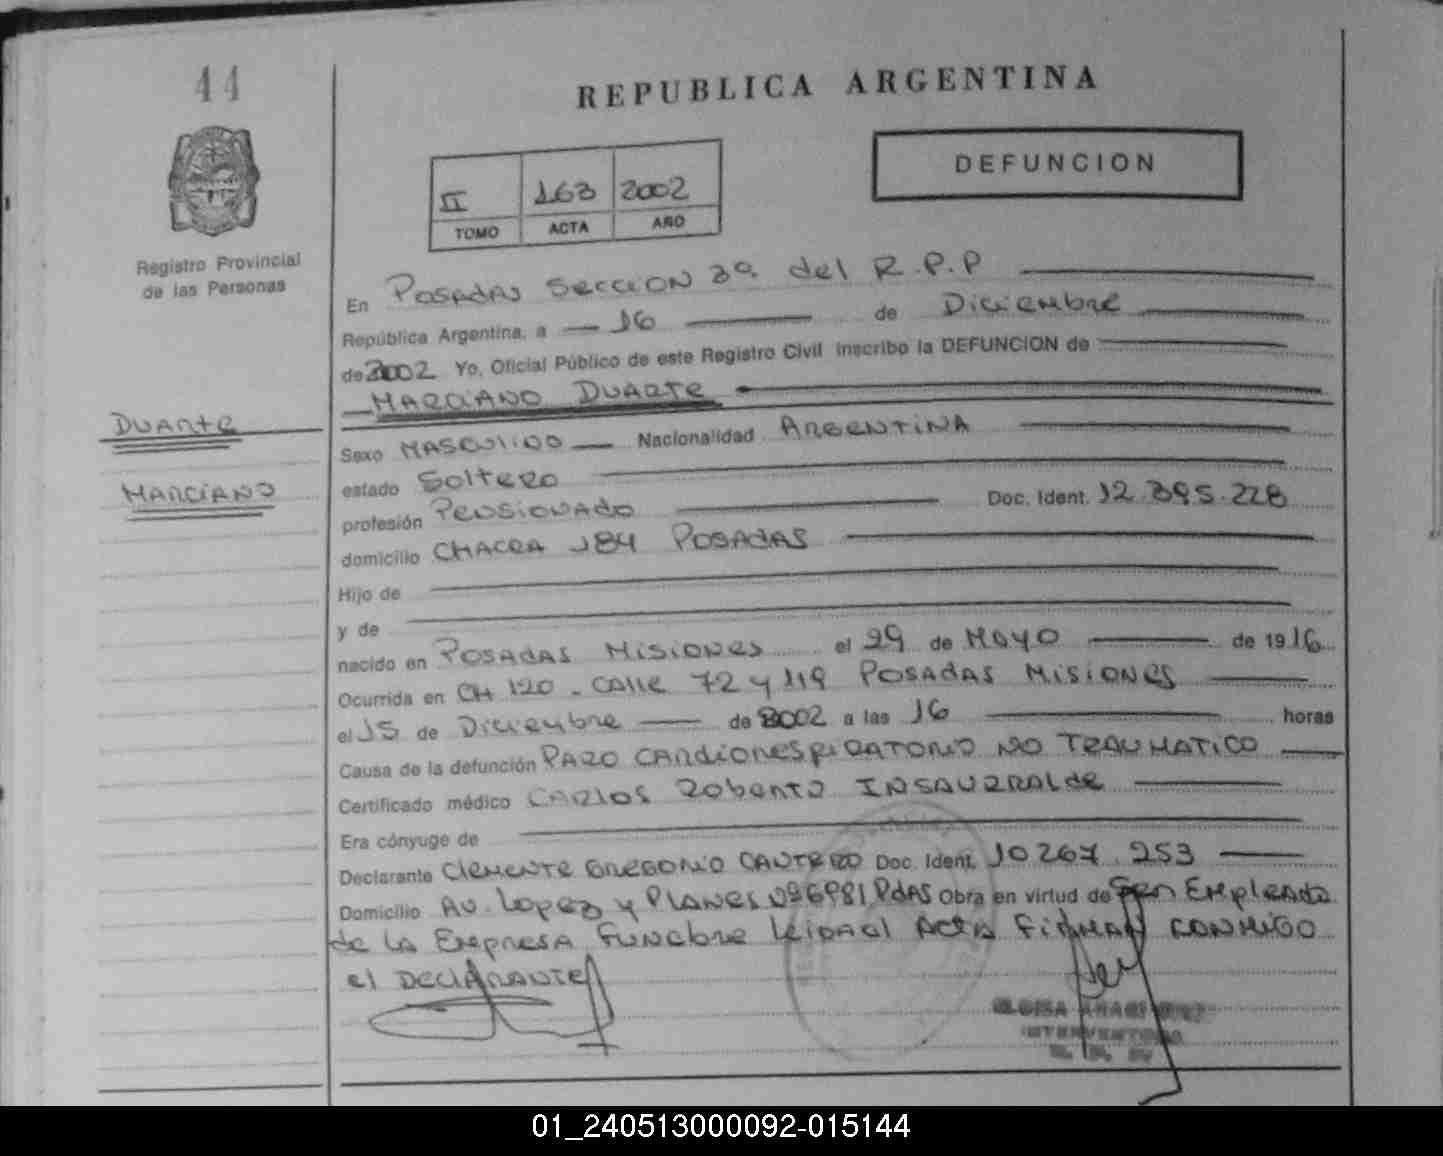 44
REPUBLICA ARGENTINA
DEFUNCION
II 163 2002
TOMO ACTA AÑO
Registro Provincial
de las Personas
En Posadas Seccion 3ª del R.P.P
República Argentina, a 16 de Diciembre
de 2002 Yo, Oficial Público de este Registro Civil inscribo la DEFUNCION de
MARCIANO DUARTE
DUARTE
MARCIANO
Sexo MASCULINO Nacionalidad ARGENTINA
estado Soltero
profesión Pensionado Doc. Ident. 12.395.228
domicilio CHACRA 184 POSADAS
Hijo de
y de
nacido en POSADAS MISIONES el 29 de MAYO de 1916
Ocurrida en CH 120 - CALLE 72 y 119 POSADAS MISIONES
el 15 de Diciembre de 2002 a las 16 horas
Causa de la defunción PARO CARDIORESPIRATORIO NO TRAUMATICO
Certificado médico CARLOS Roberto INSAURRALDE
Era cónyuge de
Declarante Clemente GREGORIO CANTERO Doc. Ident. 10267.253
Domicilio AV. Lopez y PLANES Nº 6981 PdAS Obra en virtud de Ser Empleado
de LA EMPRESA FUNEBRE Acta FIRMAN CONMIGO
el DECLARANTE
INTERVENTORA
01_240513000092-015144